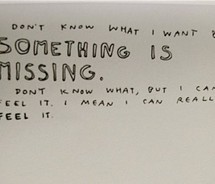 DON'T KNOW WHAT I WANT
SOMETHING IS
MISSING.
DON'T KNOW WHAT, BUT I CAN
FEEL IT. I MEAN I CAN REALLY
FEEL IT.